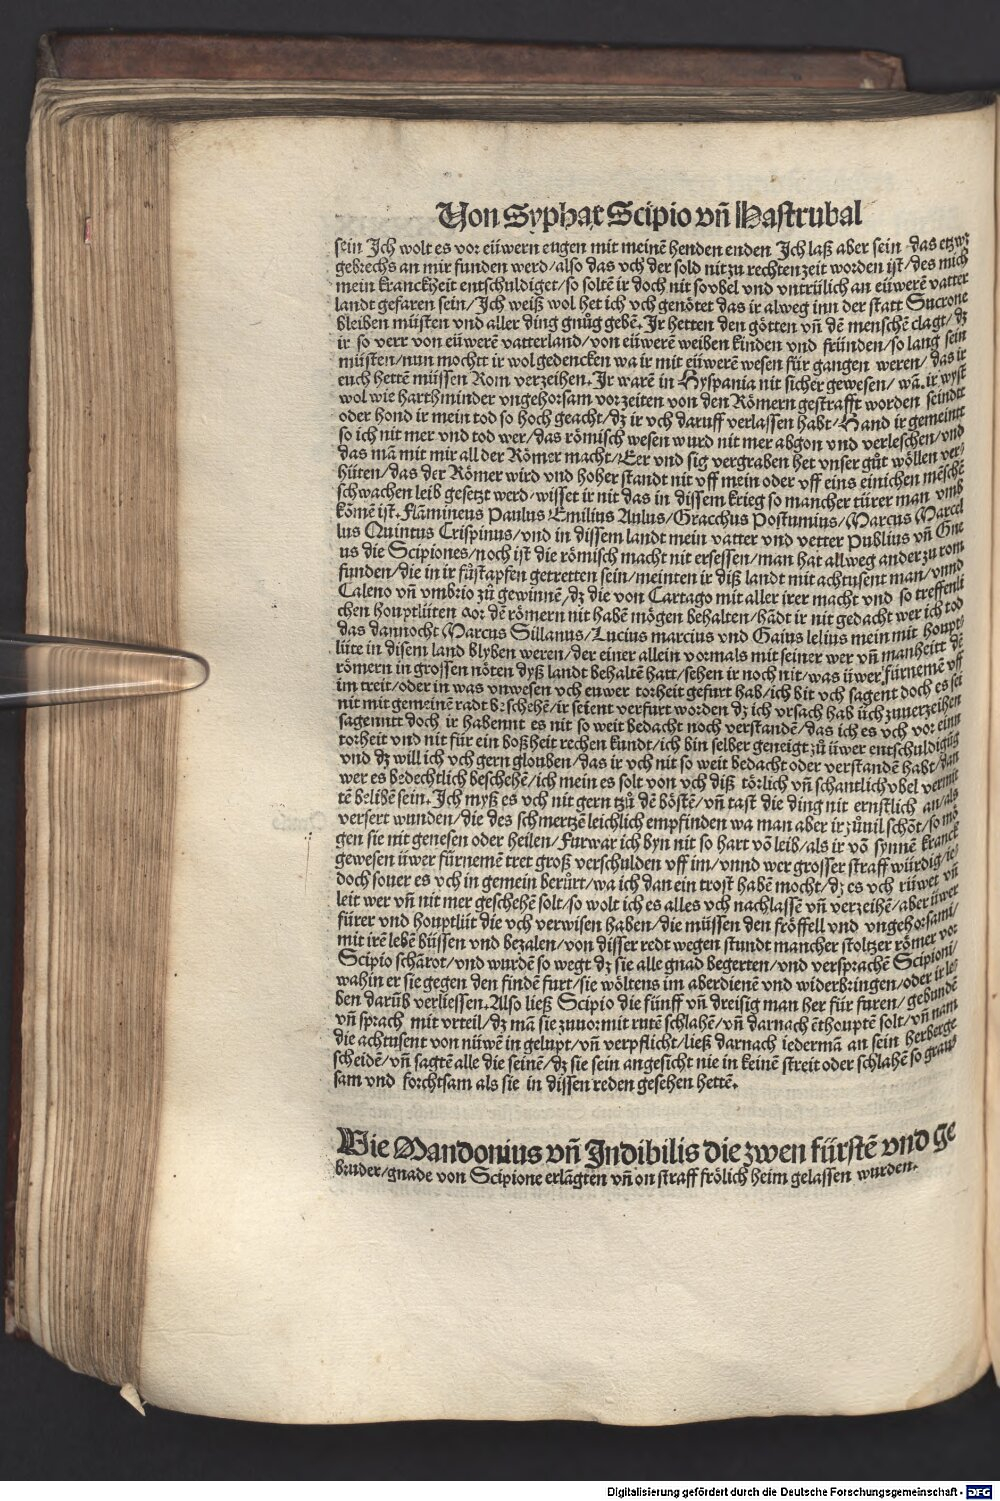 Von Syphax Scipio vñ Hastrubal
sein Ich wolt es vor eüwern eugen mit meinē henden enden Ich laß aber sein das etzwz
gebrechs an mir funden werd/also das vch der sold nit zu rechten zeit worden ist/des mich
mein kranckheit entschuldiget/so soltē ir doch nit so vbel vnd vntrülich an eüwerē vatter
landt gefaren sein/Ich weiß wol het ich vch genötet das ir alweg inn der statt Sucrone
bleiben müsten vnd aller ding gnůg gebē. Ir hetten den götten vñ dē menschē clagt/dz
ir so verr von eüwerē vatterland/von eüwerē weiben kinden vnd fründen/so lang sein
müsten/nun mochtt ir wol gedencken wa ir mit eüwerē wesen für gangen weren/das ir
euch hettē müssen Rom verzeihen. Ir warē in Hyspania nit sicher gewesen/wā. ir wyst
wol wie hart minder vngehorsam vorzeiten von den Römern gestrafft worden seindtt
oder hond ir mein tod so hoch geacht/dz ir vch daruff verlassen habt/Hand ir gemeintt
so ich nit mer vnd tod wer/das römisch wesen wurd nit mer abgon vnd verleschen/vnd
das mā mit mir all der Römer macht/Eer vnd sig vergraben het vnser gůt wöllen ver/
hüten/das der Römer wird vnd hoher standt nit vff mein oder vff eins einichen mēschē
schwachen leib gesetzt werd/wisset ir nit das in dissem krieg so mancher türer man vmb
kōmē ist. Flāmineus Paulus Emilius Aulus/Gracchus Postumius/Marcus Marcel
lus Quintus Crispinus/vnd in dissem landt mein vatter vnd vetter Publius vñ Gne
us die Scipiones/noch ist die römisch macht nit ersessen/man hat allweg ander zu rom
funden/die in ir fůstapfen getretten sein/meinten ir diß landt mit achtusent man/vnnd
Caleno vñ vmbrio zů gewinnē/dz die von Cartago mit aller irer macht vnd so treffenli
chen houptlüten vor dē römern nit habē mögen behalten/hādt ir nit gedacht wer ich tod
das dannocht Marcus Sillanus/Lucius marcius vnd Gaius lelius mein mit houpt/
lüte in disem land blyben weren/der einer allein vormals mit seiner wer vñ manheitt dē
römern in grossen nöten dyß landt behaltē hatt/sehen ir noch nit/was üwer fürnemē vff
im treit/oder in was vnwesen vch euwer torheit gefurt hab/ich bit vch sagent doch es sei
nit mit gemeinē radt beschehē/ir seient verfurt worden dz ich vrsach hab üch zuuerzeihen
sagenntt doch ir habennt es nit so weit bedacht noch verstandē/das ich es vch vor einn
torheit vnd nit für ein boßheit rechen kundt/ich bin selber geneigt zů üwer entschuldigūg
vnd dz will ich vch gern glouben/das ir vch nit so weit bedacht oder verstandē habt/dan
wer es bedechtlich beschehē/ich mein es solt von vch diß törlich vñ schantlich vbel vermit
tē belibē sein. Ich myß es vch nit gern tzů dē böstē/vñ tast die ding nit ernstlich an/als
versert wunden/die des schmertzē leichlich empfinden wa man aber ir zůuil schōt/so mö
gen sie nit genesen oder heilen/Furwar ich byn nit so hart vō leib/als ir vō synnē kranck
gewesen üwer fürnemē tret groß verschulden vff im/vnnd wer grosser straff würdig/ie/
doch souer es vch in gemein berůrt/wa ich dan ein trost habē mocht/dz es vch rüwet vñ
leit wer vñ nit mer geschehē solt/so wolt ich es alles vch nachlassē vñ verzeihē/aber üwer
fürer vnd houptlüt die vch verwisen haben/die müssen den fröffell vnd vngehorsami/
mit irē lebē büssen vnd bezalen/von disser redt wegen stundt mancher stoltzer römer vor
Scipio schārot/vnd wurdē so wegt dz sie alle gnad begerten/vnd versprachē Scipioni/
wahin er sie gegen den findē furt/sie wöltens im aberdienē vnd widerbringen/oder ir le/
ben darūb verliessen. Also ließ Scipio die fünff vñ dreisig man her für furen/gebundē
vñ sprach mit vrteil/dz mā sie zuuor mit rutē schlahē/vñ darnach ēthouptē solt/vñ nam
die achtusent von nüwē in gelupt/vñ verpflicht/ließ darnach iedermā an sein herberge
scheidē/vñ sagtē alle die seinē/dz sie sein angesicht nie in keinē streit oder schlahē so graus
sam vnd forchtsam als sie in dissen reden gesehen hettē.
Wie Mandonius vñ Indibilis die zwen fürstē vnd ge
bruder/gnade von Scipione erlāgten vñ on straff frölich heim gelassen wurden.
Digitalisierung gefördert durch die Deutsche Forschungsgemeinschaft - DFG